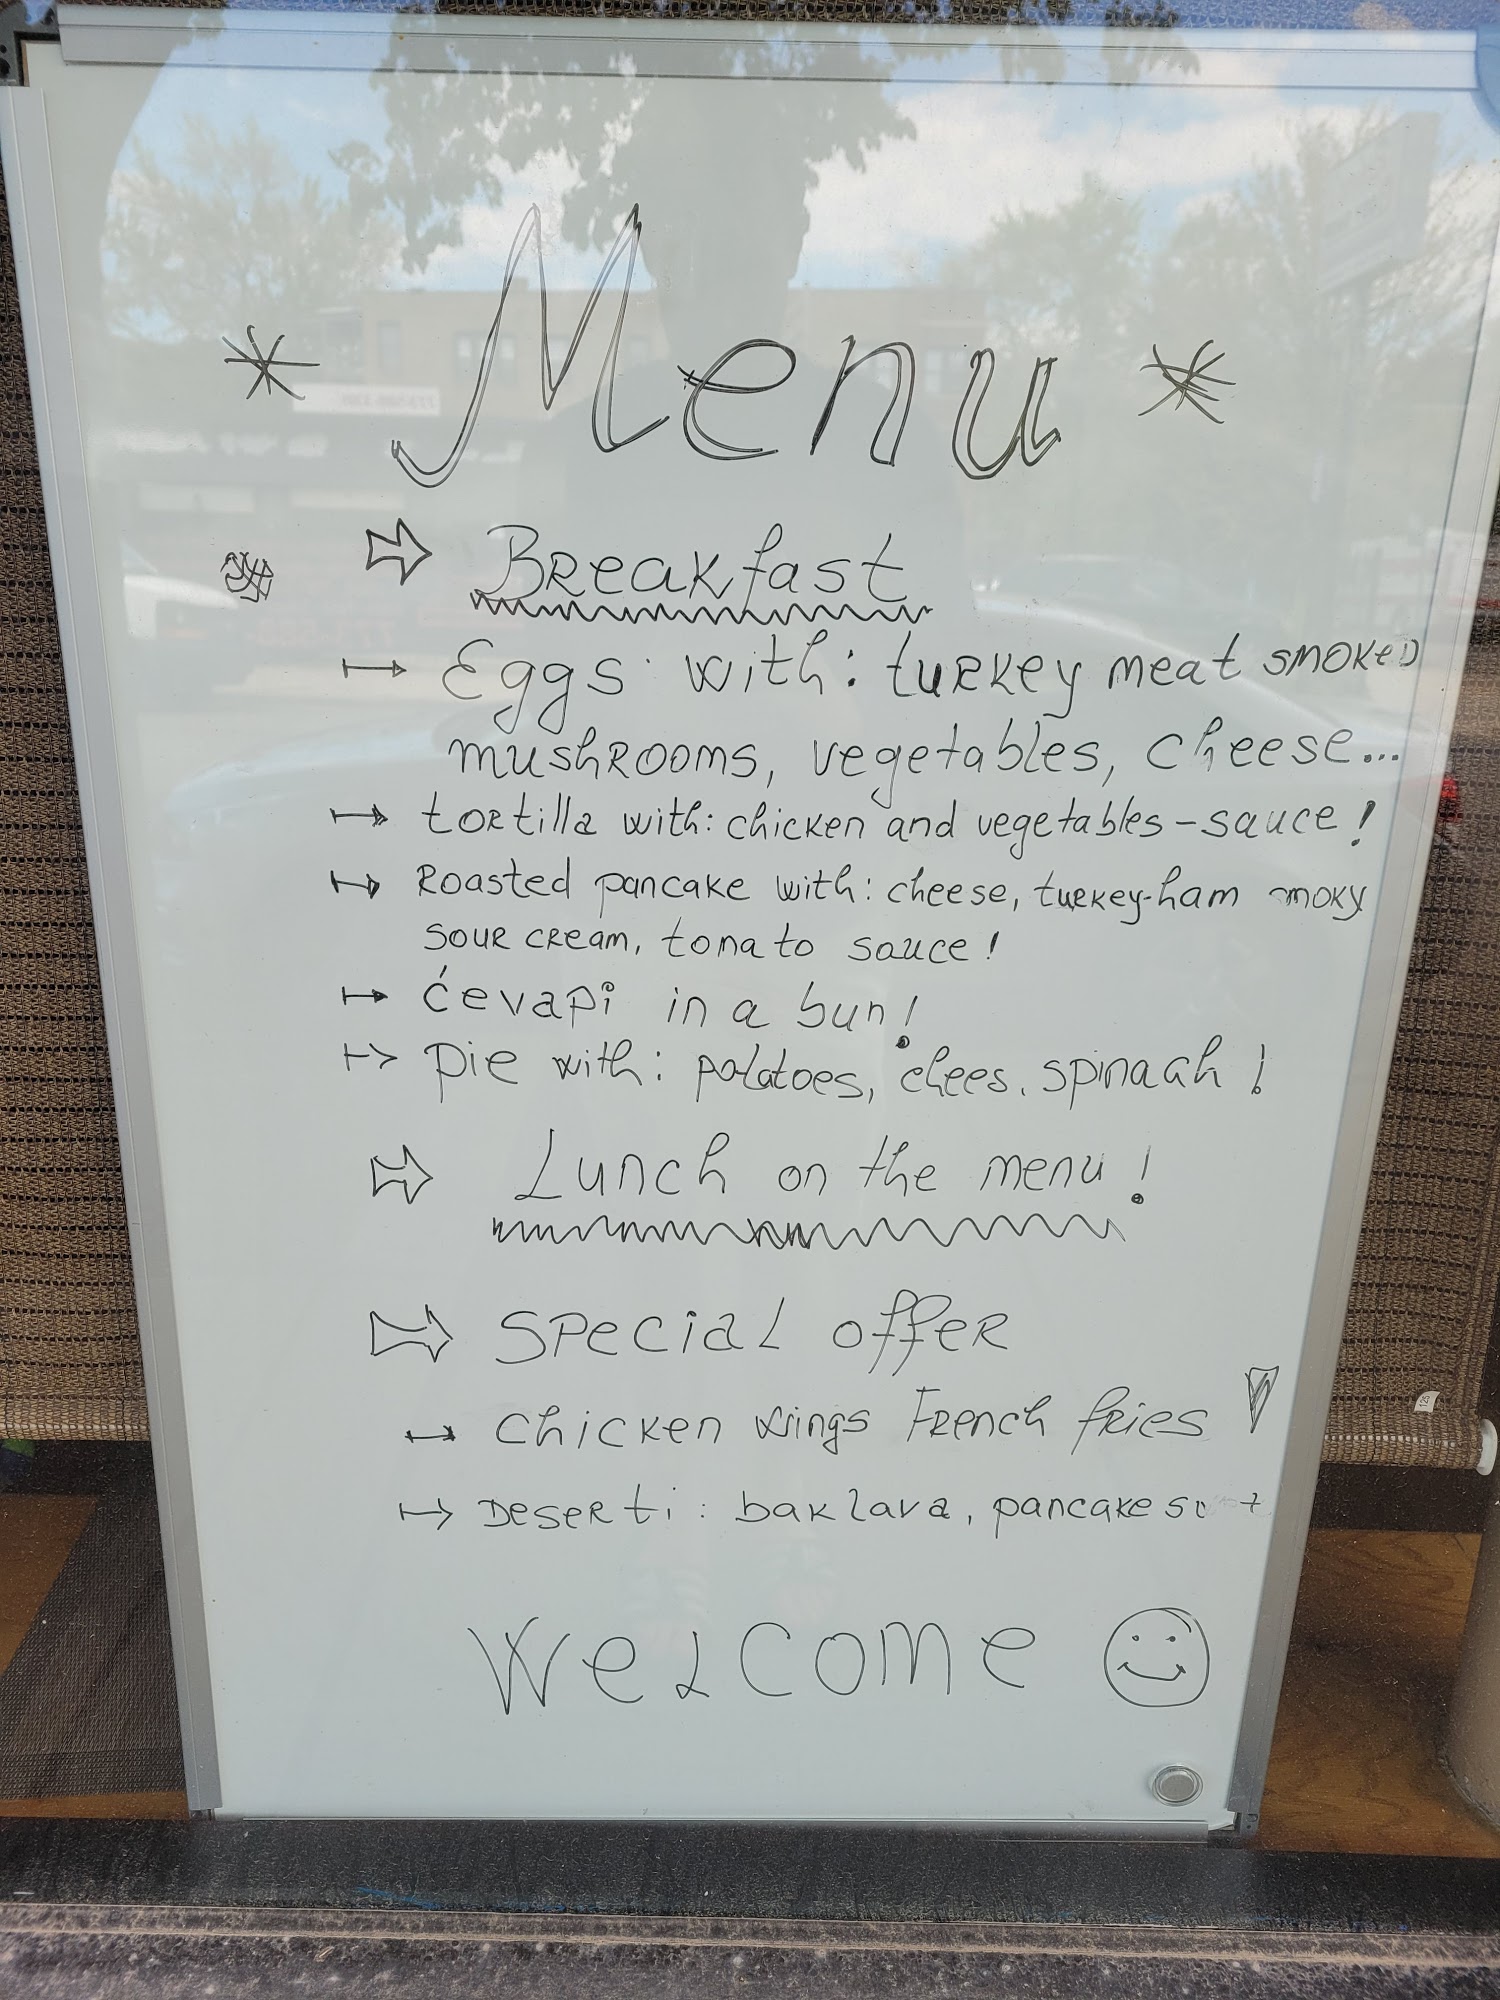 * Menu *
Breakfast
Eggs with: turkey meat smoked
mushrooms, vegetables, cheese...
tortilla with: chicken and vegetables - sauce!
Roasted pancake with: cheese, turkey-ham smoky
sour cream, tonato sauce!
ćevapi in a bun!
pie with: potatoes, chees, spinach!
Lunch on the menu!
Special offer
chicken wings French fries!
Deserti: baklava, pancake
Welcome